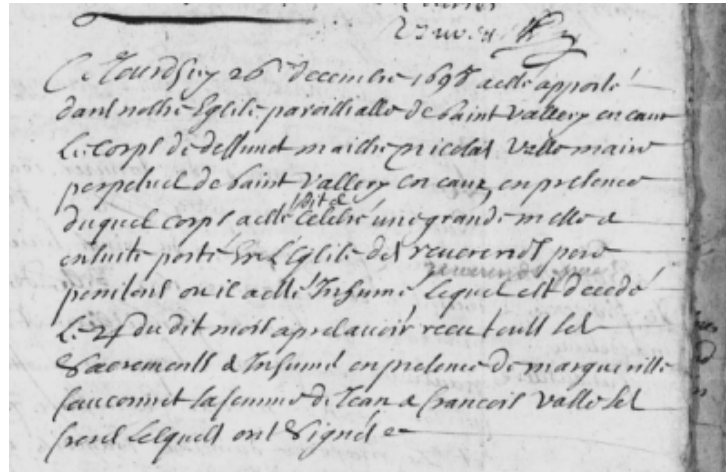 Ce Jourdhuy 26e decembre 1698 a esté apporté
dans nostre Eglise paroissialle de Saint Vallery en caux
Le corps de deffunct maistre nicolas Valle maire
perpetuel de Saint Vallery en caux, en presence
duquel corps a esté celebré une grande messe &
ensuite porté En L'Eglise des reverends pere
penitens ou il a esté Inhumé Lequel est decedé
Le du dit mois apres avoir receu tous les
Sacrements & Inhumé en presence de marguerille
fauconnet sa femme de Jean & francois Valle ses
freres Lesquels ont Signés